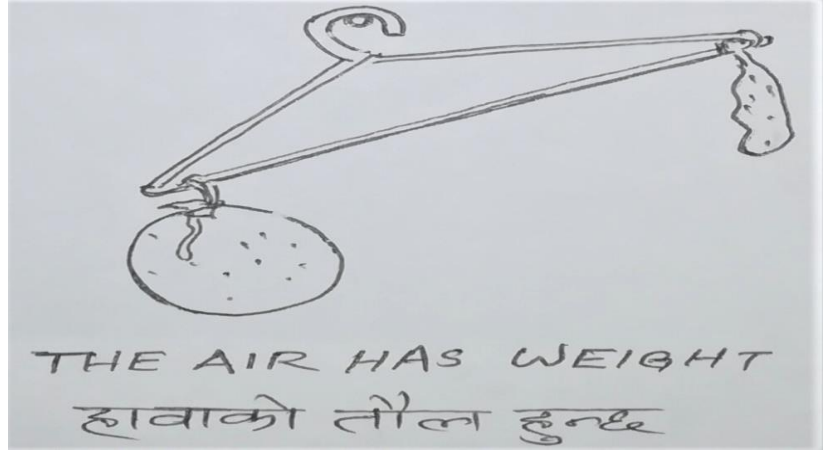 THE AIR HAS WEIGHT
हावाको तौल हुन्छ